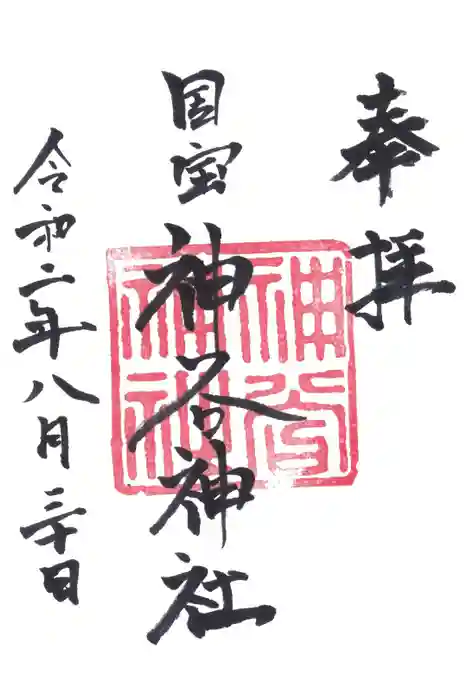 奉拝
国宝 神谷神社
神谷神社
令和二年八月三十日